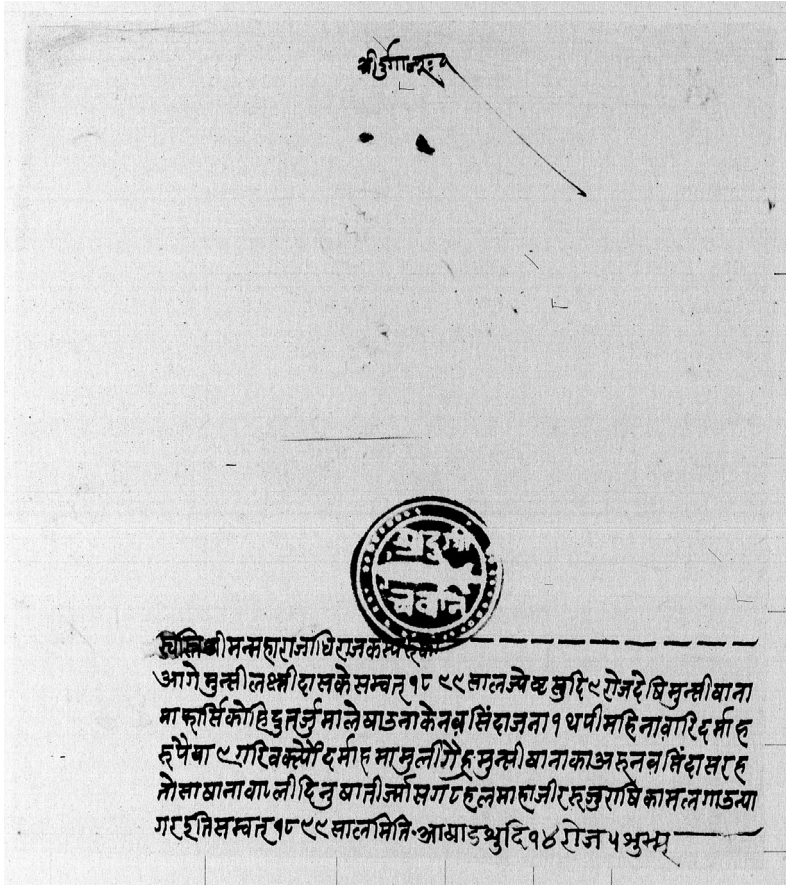 श्रीदुर्गा
श्रीदुर्गा
भवानि
स्वस्तिश्रीमन्महाराजाधिराजकस्यरुक्का
आगे मुन्सीलक्ष्मीदासके सम्वत् १८९९ सालज्येष्ट सुदि ९ रोजदेषि मुन्सीषाना
मा फार्सिको हिदुतर्जुमा लेषाउनाके नवसिंदा जना १ थपी महिनावारि दर्माहा
रुपैया ९ गरिवक्स्यौं दर्माहा मामुली मुन्सीषानाका अरु नवसिंदा सरह
तोसाषाना वाट लीदिनु षातीर्जामासग टहलमा हाजीर रुजु राषि कामलगाउन्या
गर इति सम्वत् १८९९ साल मिति आषाड श्रुदि १४ रोज ५ श्रुभम्